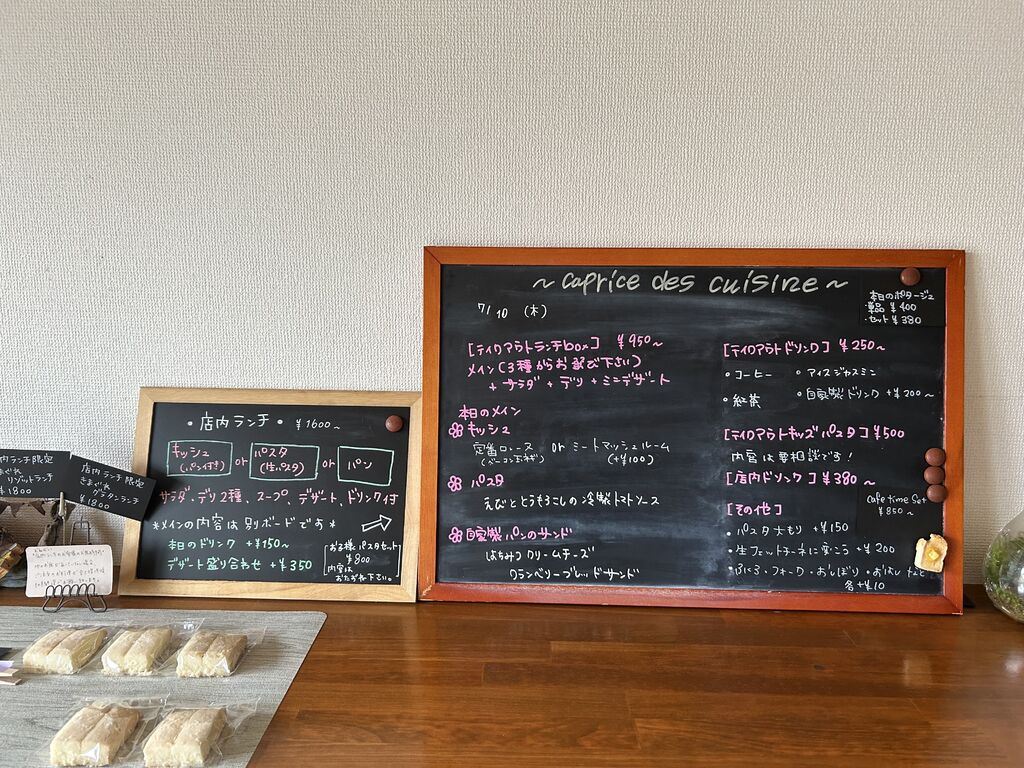 店内ランチ限定
リゾットランチ
¥1800
店内ランチ限定
きまぐれ
グラタンランチ
¥1800
・店内ランチ・ ¥1600~
キッシュ
(パン付き)
or
パスタ
(生パスタ)
or
パン
サラダ、デリ2種、スープ、デザート、ドリンク付
*メインの内容は別ボードです*
本日のドリンク +¥150~
デザート盛り合わせ +¥350
お子様パスタセット
¥800
内容は
おたずね下さい。
~ caprice des cuisine ~
7/10 (木)
本日のポタージュ
・単品 ¥400
・セット ¥380
[テイクアウトランチbox] ¥950~
メイン(3種からお選び下さい)
+サラダ+デリ+ミニデザート
本日のメイン
キッシュ
定番ロレーヌ or ミートマッシュルーム
(ベーコン玉ネギ) (+¥100)
パスタ
えびととうもろこしの冷製トマトソース
自家製パンのサンド
はちみつクリームチーズ
クランベリーブレッドサンド
[テイクアウトドリンク] ¥250~
・コーヒー ・アイスジャスミン
・紅茶 ・自家製ドリンク +¥200~
[テイクアウトキッズパスタ] ¥500
内容は要相談です!
[店内ドリンク] ¥380~
[その他]
・パスタ大もり +¥150
・生フェットチーネに変こう +¥200
・ふくろ・フォーク・おしぼり・おはしなど
各+¥10
Cafe time Set
¥850~